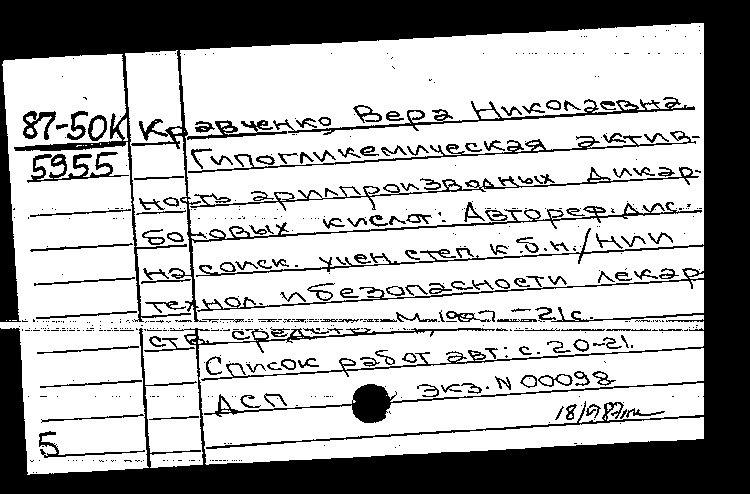 87-50К
5955
Кравченко Вера Николаевна.
Гипогликемическая актив-
ность арилпроизводных дикар-
боновых кислот: Автореф. дис.
на соиск. учен. степ. к.б.н./НИИ
технол. и безопасности лекар
ств. средств М, 1987 -21с.
Список работ авт: с. 20-21.
ДСП экз. N 00098
5